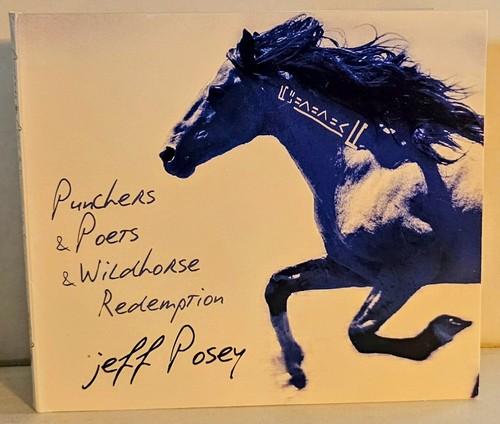 Punchers
& Poets
& Wildhorse
Redemption
jeff Posey